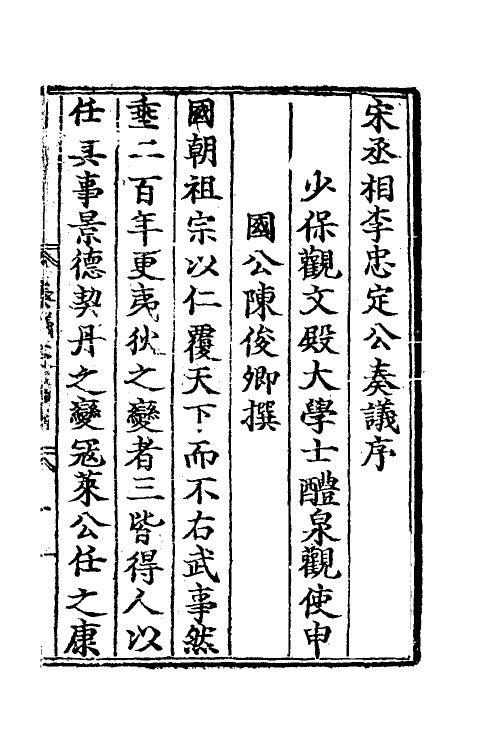 宋丞相李忠定公奏議序
少保觀文殿大學士醴泉觀使申
國公陳俊卿撰
國朝祖宗以仁覆天下而不右武事然
垂二百年更夷狄之變者三皆得人以
任其事景德契丹之變寇萊公任之康